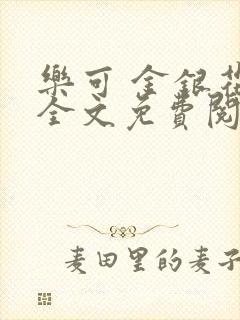 樂可 金銀花
全文免費閱
麦田里的麦子